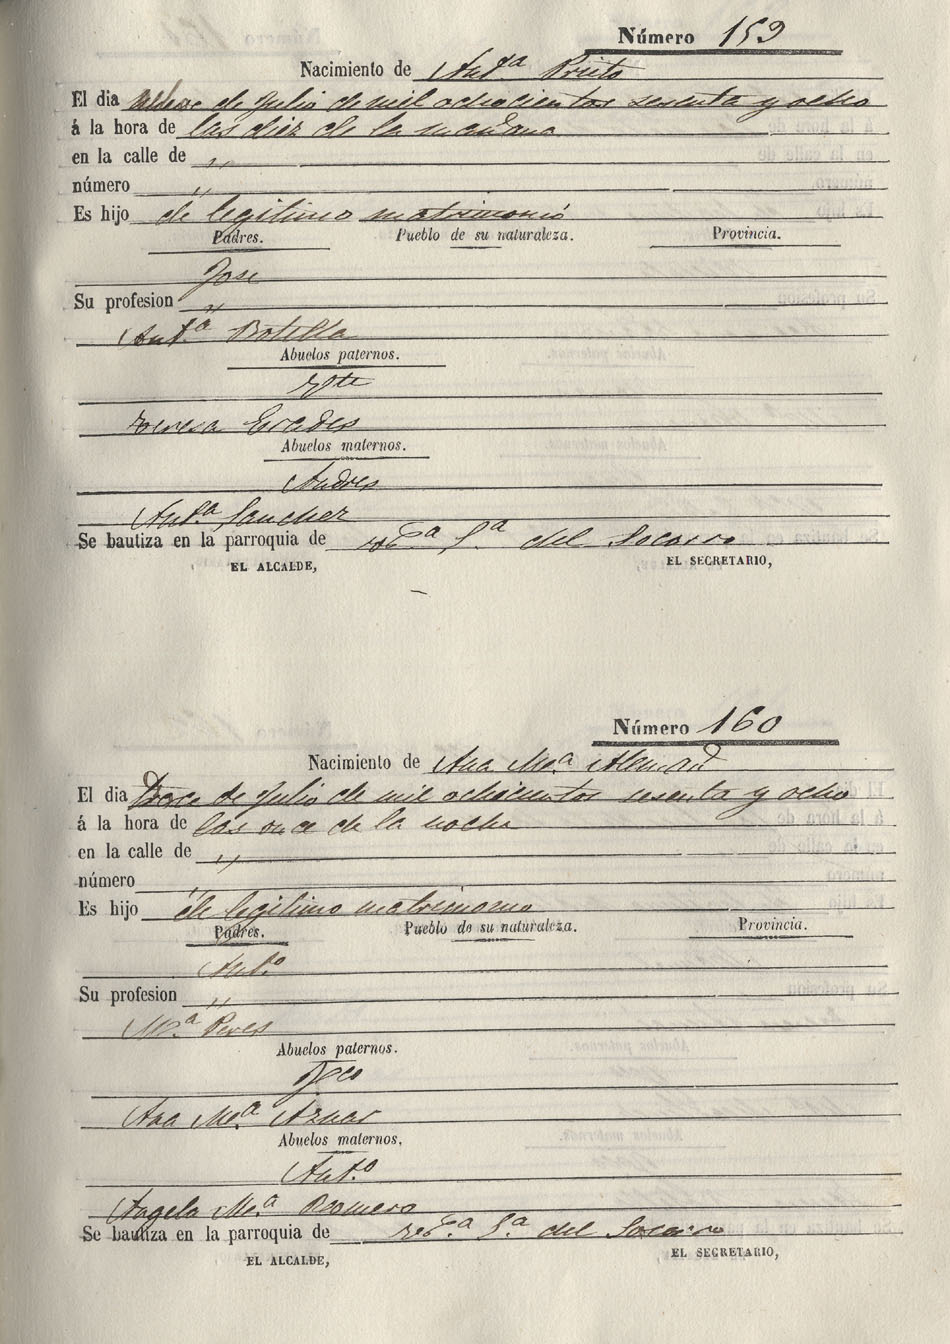 Número 159
Nacimiento de Antª Prieto
El dia de Julio de mil ochocientos sesenta y ocho
á la hora de las diez de la mañana
en la calle de "
número "
Es hijo de legitimo matrimonio
Padres. Pueblo de su naturaleza. Provincia.
Jose
Su profesion "
Ant.ª Botella
Abuelos paternos.
Vte
Teresa Erades
Abuelos maternos.
Andres
Ant.ª Sanchez
Se bautiza en la parroquia de Sª del Socorro
EL ALCALDE, EL SECRETARIO,
Número 160
Nacimiento de Ana M.ª Aleman
El dia Trece de Julio de mil ochocientos sesenta y ocho
á la hora de las once de la noche
en la calle de "
número "
Es hijo de legitimo matrimonio
Padres. Pueblo de su naturaleza. Provincia.
Ant.º
Su profesion "
M.ª Peres
Abuelos paternos.
Ana M.ª Aznar
Abuelos maternos.
Ant.º
Angela M.ª Romero
Se bautiza en la parroquia de S.ª del Socorro
EL ALCALDE, EL SECRETARIO,